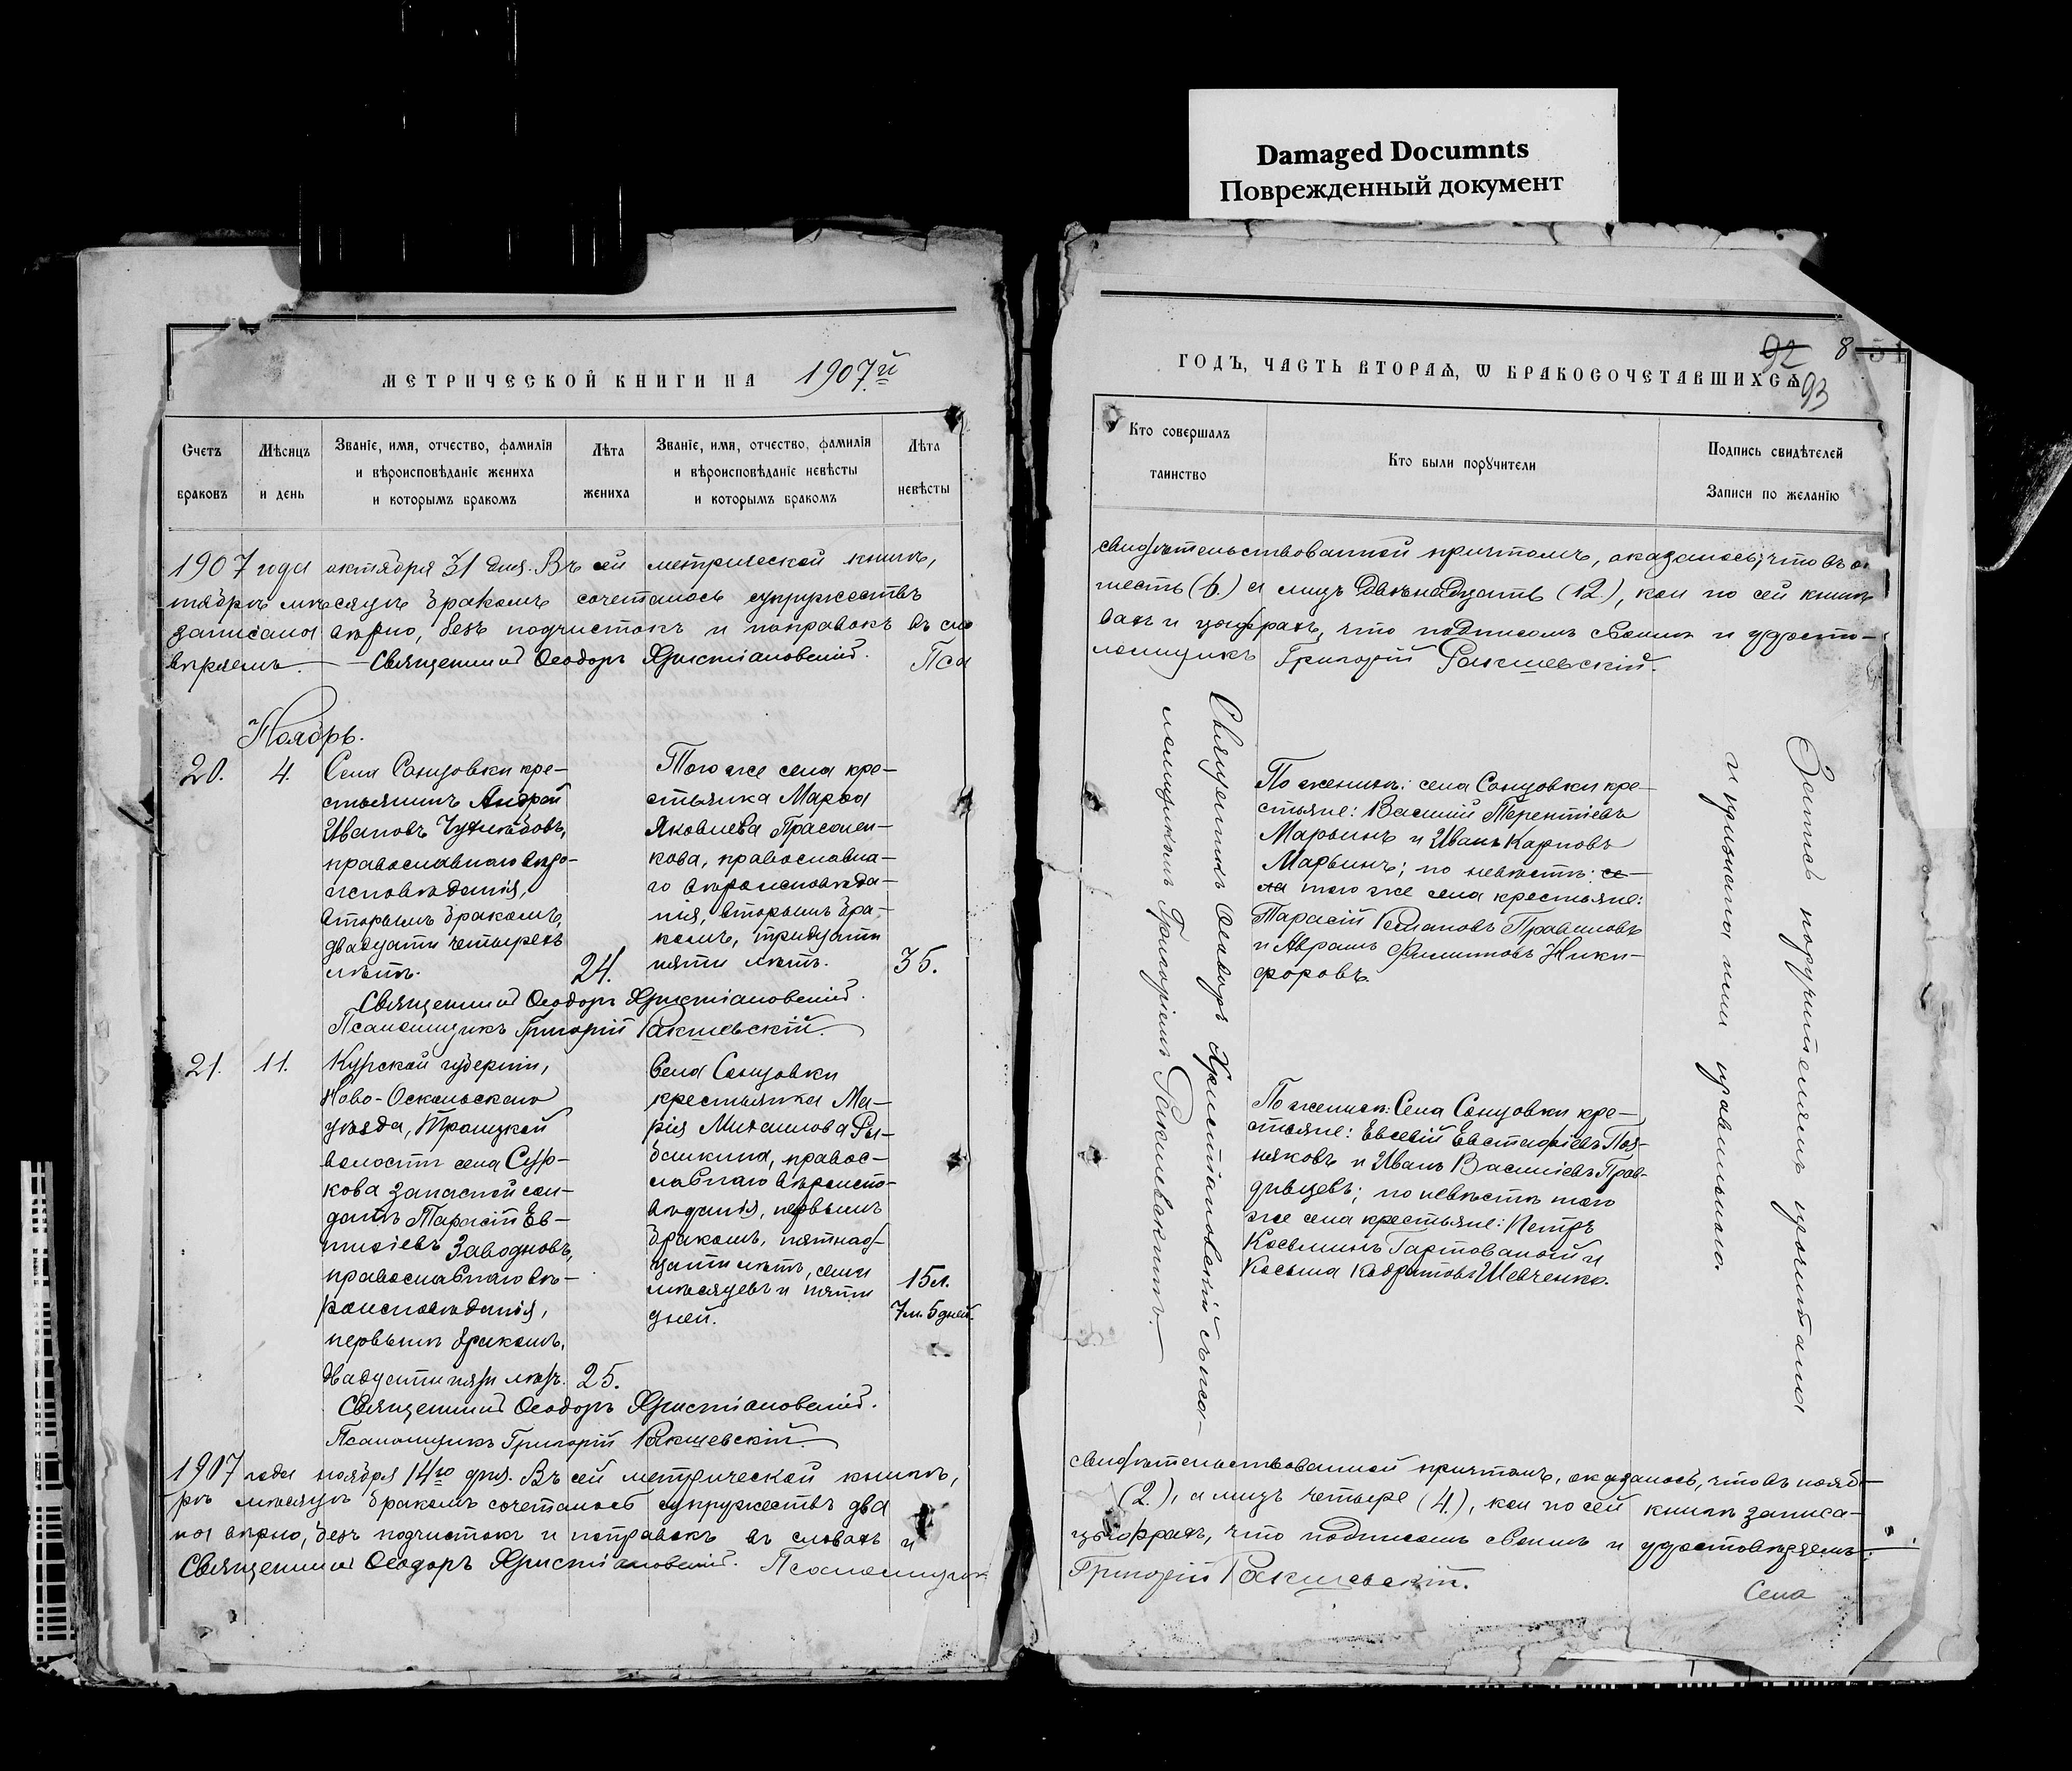 Damaged Documnts
Поврежденный документ
МЕТРИЧЕСКОЙ КНИГИ НА 1907й
Счетъ браковъ
Мѣсяцъ и день
Званіе, имя, отчество, фамилія
и вѣроисповѣданіе жениха
и которымъ бракомъ
Лѣта жениха
Званіе, имя, отчество, фамилія
и вѣроисповѣданіе невѣсты
и которымъ бракомъ
Лѣта невѣсты
1907 года октября 31 дня. Въ сей метрической книгѣ,
тябрѣ мѣсяцѣ бракомъ сочеталось супружествъ
записаны вѣрно, безъ подчистокъ и поправокъ въ сло
вѣряемъ. — Священникъ Ѳеодоръ Христіановскій. Пса
Ноябрь.
20.
4.
Села Сонцовки кре-
стьянинъ Андрей
Ивановъ
православнаго вѣро-
исповѣданія,
вторымъ бракомъ,
двадцати четырехъ
лѣтъ.
24.
Того же села кре-
стьянка Марѳа
Яковлева
кова, православна-
го вѣроисповѣда-
нія, вторымъ бра-
комъ, тридцати
пяти лѣтъ.
35.
Священникъ Ѳеодоръ Христіановскій.
Псаломщикъ Григорій Ракшевскій.
21.
11.
Курской губерніи,
Ново-Оскольскаго
уѣзда, Троицкой
волости села Сур-
кова запасной сол-
датъ Тарасій Ев-
Заводновъ,
православнаго вѣ-
роисповѣданія,
первымъ бракомъ,
двадцати пяти лѣтъ.
25.
Села Сонцовки
крестьянка Ма-
рія Михаилова Ры-
балкина, правос-
лавнаго вѣроиспо-
вѣданія, первымъ
бракомъ, пятнад-
цати лѣтъ, семи
мѣсяцевъ и пяти
дней.
15 л.
7 м. 5 дней.
Священникъ Ѳеодоръ Христіановскій.
Псаломщикъ Григорій Ракшевскій.
1907 года ноября 14го дня. Въ сей метрической книгѣ,
рѣ мѣсяцѣ бракомъ сочеталось супружествъ два
ны вѣрно, безъ подчистокъ и поправокъ въ словахъ и
Священникъ Ѳеодоръ Христіановскій. Псаломщикъ
92 8
93
ГОДЪ, ЧАСТЬ ВТОРАЯ, Ѡ БРАКОСОЧЕТАВШИХСЯ
Кто совершалъ таинство
Кто были порꙋчители
Подпись свидѣтелей
Записи по желанію
свидѣтельствованной причтомъ, оказалось, что въ ок
шесть (6.) а лицъ двѣнадцать (12.), кои по сей книгѣ
вахъ и цыфрахъ, что подписомъ своимъ и удосто-
ломщикъ Григорій Ракшевскій.
Священникъ Ѳеодоръ Христіановскій съ пса-
ломщикомъ Григоріемъ Ракшевскимъ.
По женихѣ: села Сонцовки кре-
стьяне: Василій Терентіевъ
Марьинъ и Иванъ Карповъ
Марьинъ; по невѣстѣ: се-
ла того же села крестьяне:
Тарасій
и Аврамъ Филипповъ Ники-
форовъ.
По женихѣ: Села Сонцовки кре-
стьяне: Евсевій Евстафіевъ Поз-
няковъ и Иванъ Василіевъ Прав-
дивцевъ; по невѣстѣ того
же села крестьяне: Петръ
Косьминъ и
Косьма Кодратовъ Шевченко.
Запись поручителямъ прочитана
и признана ими правильною.
свидѣтельствованной причтомъ, оказалось, что въ нояб-
(2.), а лицъ четыре (4.), кои по сей книгѣ записа-
цыфрахъ, что подписомъ своимъ и удостовѣряемъ.
Григорій Ракшевскій.
Села